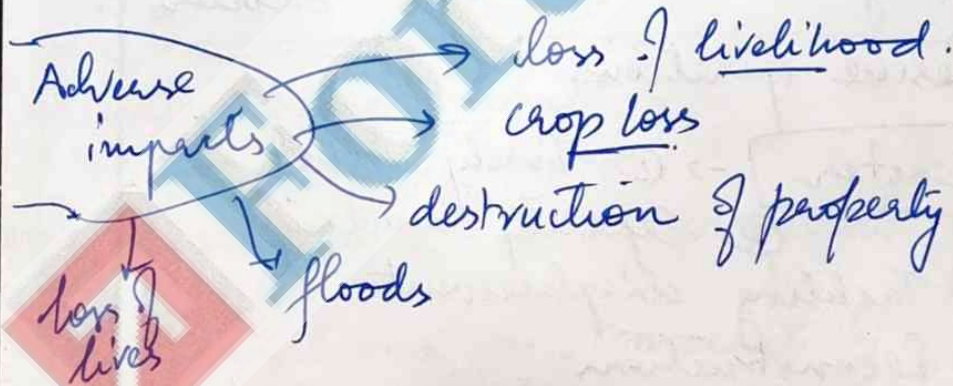 Adverse
impacts
loss of livelihood.
crop loss
destruction of property
floods
loss of
lives
For